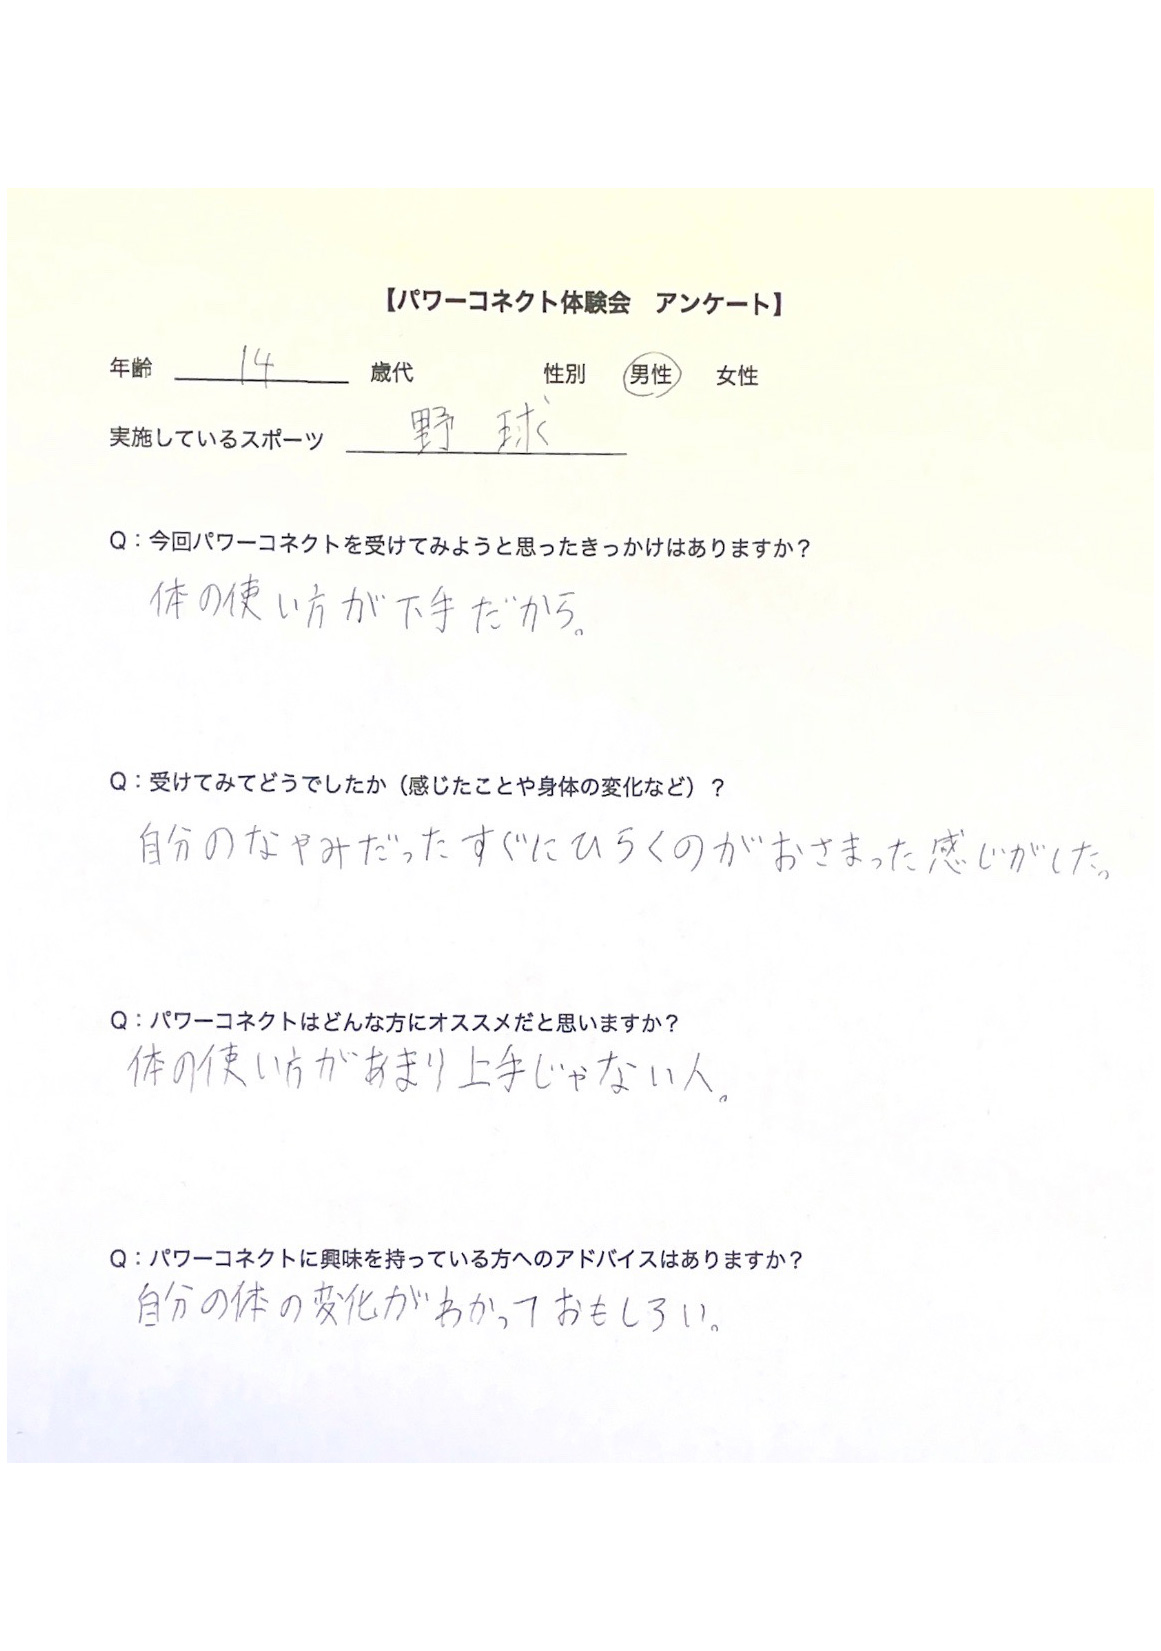 【パワーコネクト体験会　アンケート】
年齢 14 歳代 性別 男性 女性
実施しているスポーツ 野球
Q：今回パワーコネクトを受けてみようと思ったきっかけはありますか？
体の使い方が下手だから。
Q：受けてみてどうでしたか（感じたことや身体の変化など）？
自分のなやみだったすぐにひらくのがおさまった感じがした。
Q：パワーコネクトはどんな方にオススメだと思いますか？
体の使い方があまり上手じゃない人。
Q：パワーコネクトに興味を持っている方へのアドバイスはありますか？
自分の体の変化がわかっておもしろい。